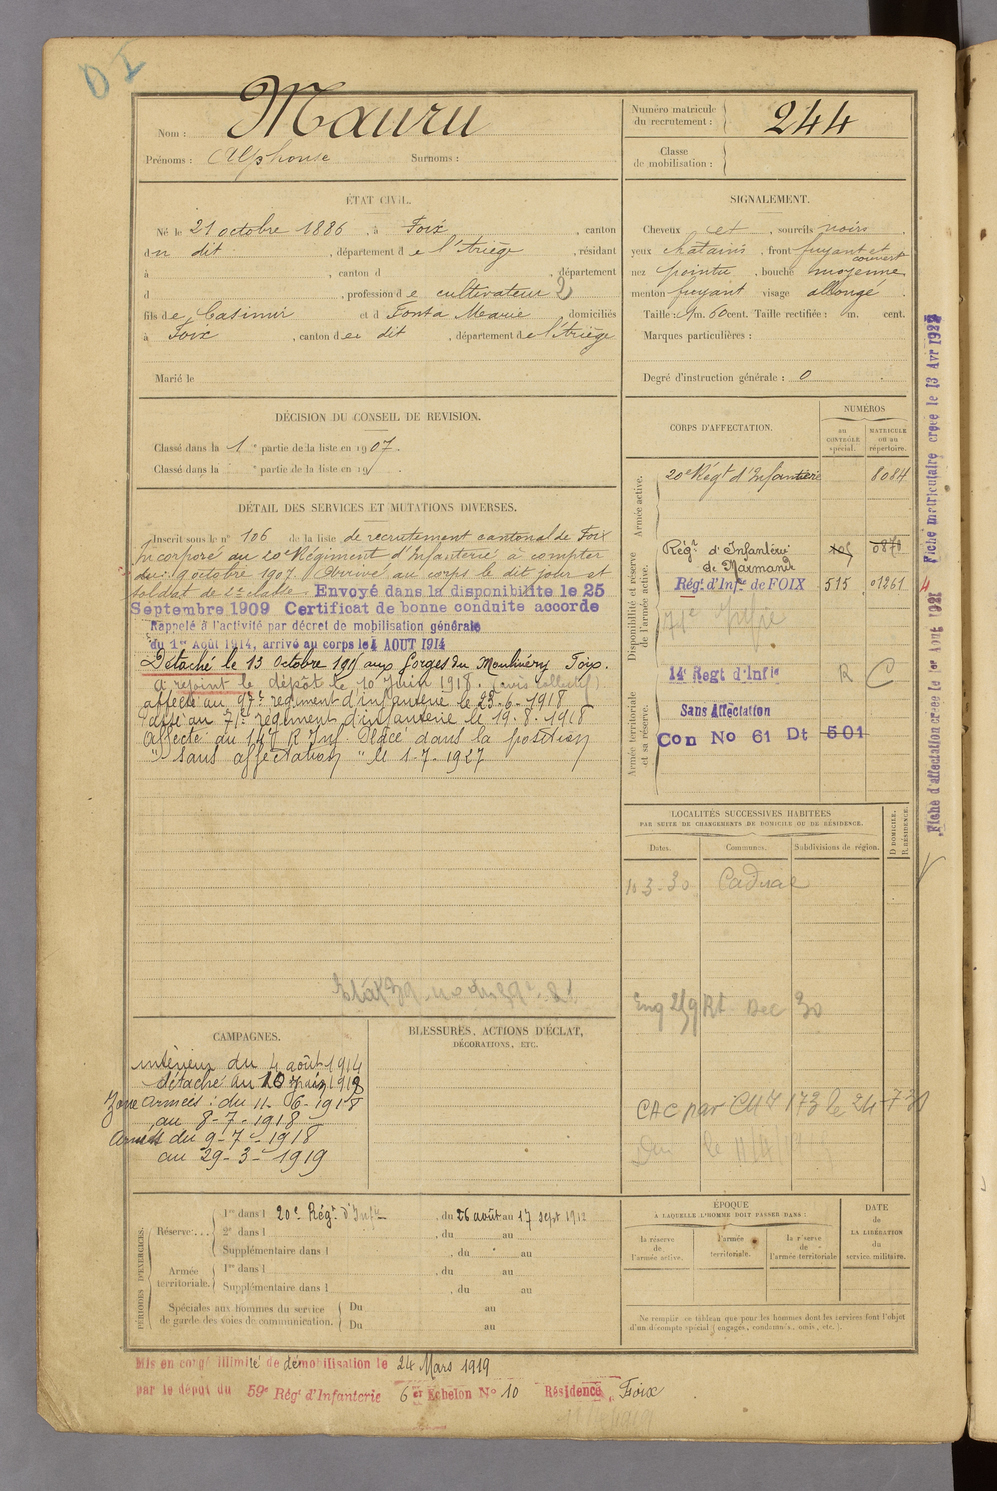 Nom : Mauru
Prénoms : Alphonse Surnoms :
Numéro matricule du recrutement : 244
Classe de mobilisation :
ÉTAT CIVIL.
Né le 21 octobre 1886, à Foix, canton
du dit, département de l'Ariège, résidant
à , canton d , département
d , profession de cultivateur 2
fils de Casimir et d Fonta Marie domiciliés
à Foix, canton de dit, département de l'Ariège
Marié le
SIGNALEMENT.
Cheveux et, sourcils noirs
yeux chatains, front fuyant et couvert
nez pointu, bouche moyenne
menton fuyant visage allongé
Taille : 1m. 60 cent. Taille rectifiée : m. cent.
Marques particulières :
Degré d'instruction générale : 0
DÉCISION DU CONSEIL DE REVISION.
Classé dans la 1re partie de la liste en 1907.
Classé dans la e partie de la liste en 19
DÉTAIL DES SERVICES ET MUTATIONS DIVERSES.
Inscrit sous le n° 106 de la liste de recrutement cantonal de Foix
Incorporé au 20e Régiment d'Infanterie à compter
du 9 octobre 1907. Arrivé au corps le dit jour et
soldat de 2e classe. Envoyé dans la disponibilite le 25
Septembre 1909 Certificat de bonne conduite accorde
Rappelé à l'activité par décret de mobilisation générale
du 1er Août 1914, arrivé au corps le 4 AOUT 1914
Détaché le 13 Octobre 191 aux forges du Moulinéry Foix.
a rejoint le dépôt le 10 Juin 1918. (avis collectif)
affecté au 97e régiment d'infanterie le 25-6-1918
Passé au 71e régiment d'infanterie le 19.8.1918
Affecté au 14e R Inf Placé dans la position
" sans affectation " le 1-7-1927
CORPS D'AFFECTATION.
NUMÉROS
au CONTRÔLE spécial.
MATRICULE ou au répertoire.
Armée active.
20e Régt d'Infanterie 8084
Disponibilité et réserve de l'armée active.
Régt d'Infanterie de Marmande
Rég. d'Infie de FOIX 515 01261
Armée territoriale et sa réserve.
14e Regt d'Infie R C
Sans Affectation
Con No 61 Dt 501
Fiche matriculaire créée le 13 Avr 1927
Fiche d'affectation créée le 1er Aout 1921
LOCALITÉS SUCCESSIVES HABITÉES
PAR SUITE DE CHANGEMENTS DE DOMICILE OU DE RÉSIDENCE.
Dates. Communes. Subdivisions de région. D DOMICILE. R RÉSIDENCE.
10-3-30
CAC par CM 173 le 24-7-31
CAMPAGNES.
intérieur du 4 août 1914
détaché au 10 juin 1918
Zone armées : du 11-6-1918
au 8-7-1918
Armées du 9-7-1918
au 29-3-1919
BLESSURES, ACTIONS D'ÉCLAT,
DÉCORATIONS, ETC.
PÉRIODES D'EXERCICES.
Réserve : 1re dans l 20e Régt d'Infie, du 26 août au 17 sept 1912
2e dans l , du au
Supplémentaire dans l , du au
Armée territoriale. 1re dans l , du au
Supplémentaire dans l , du au
Spéciales aux hommes du service de garde des voies de communication. Du au
Du au
ÉPOQUE
À LAQUELLE L'HOMME DOIT PASSER DANS :
la réserve de l'armée active.
l'armée territoriale.
la réserve de l'armée territoriale
DATE de LA LIBÉRATION du service militaire.
Ne remplir ce tableau que pour les hommes dont les services font l'objet
d'un décompte spécial (engagés, condamnés, omis, etc.).
Mis en congé illimité de démobilisation le 24 Mars 1919
par le dépot du 59e Rég d'Infanterie 6e Echelon No 10 Résidence Foix